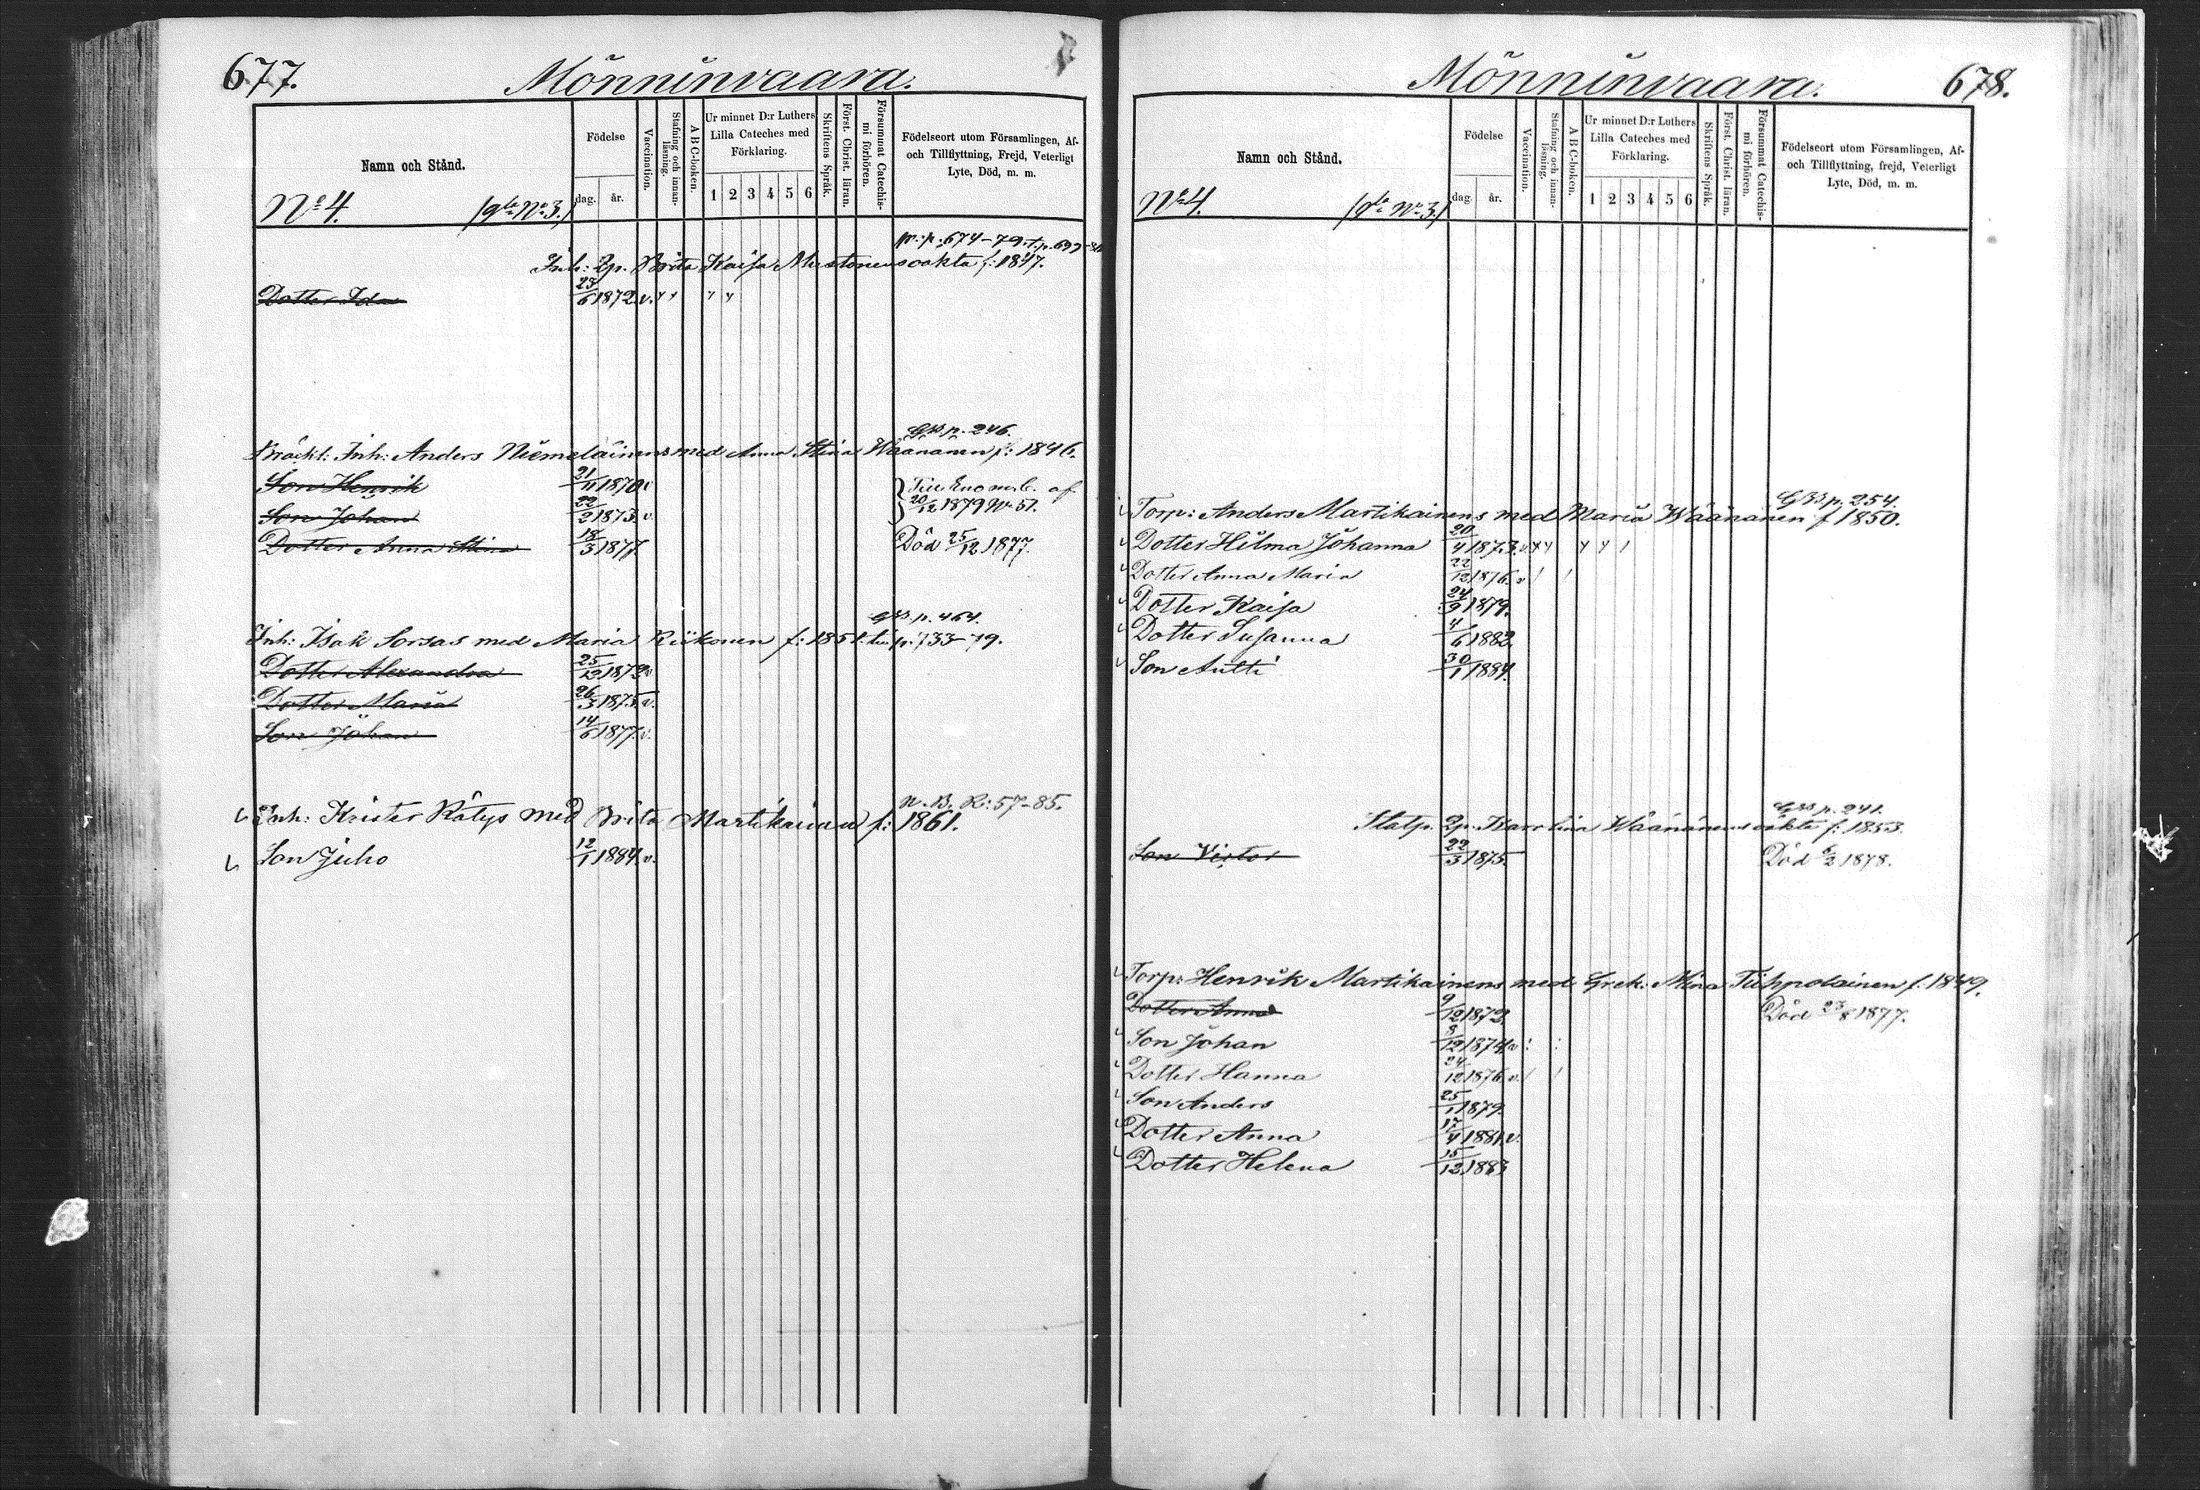 677.
Mönninvaara.
Namn och Stånd.
Födelse
dag.
år.
Vaccination.
Stafning och innan-läsning.
A B C-boken.
Ur minnet D:r Luthers
Lilla Cateches med
Förklaring.
1 2 3 4 5 6
Skriftens Språk.
Först. Christ. läran.
Försummat Catechis-
mi förhören.
Födelseort utom Församlingen, Af-
och Tillflyttning, Frejd, Veterligt
Lyte, Död, m. m.
No 4. No 3.
p. 674-79.
Inh: Brita Kaisa oäkta f: 1847.
Dotter Ida 23/6 1872. v.
p. 246.
Inh: Anders Niemeläinens med Anna Stina Wäänänen f: 1846.
Son Henrik 21/11 1870 v Till Eno af
Son Johan 22/2 1873. v. 20/12 1879 No 51.
Dotter Anna Stina 18/3 1877 Död 25/12 1877.
p. 464.
Inh: Isak Sorsas med Maria f: 1851 p. 733-79.
Dotter Alexandra 25/12 1872 v
Dotter Maria 26/3 1875. v.
Son Johan 14/6 1877. v.
N. B. R: 57-85.
Inh: Krister Rätys med Brita Martikainen f: 1861.
Son Juho 12/1 1884. v.
Mönninvaara.
678.
Namn och Stånd.
Födelse
dag.
år.
Vaccination.
Stafning och innan-läsning.
A B C-boken.
Ur minnet D:r Luthers
Lilla Cateches med
Förklaring.
1 2 3 4 5 6
Skriftens Språk.
Först. Christ. läran.
Försummat Catechis-
mi förhören.
Födelseort utom Församlingen, Af-
och Tillflyttning, frejd, Veterligt
Lyte, Död, m. m.
No 4. No 3.
p. 254.
Torp: Anders Martikainens med Maria Wäänänen f 1850.
Dotter Hilma Johanna 20/4 1873. v
Dotter Anna Maria 22/12 1876. v
Dotter Kaisa 24/9 1879.
Dotter Susanna 4/6 1882.
Son Antti 30/1 1884.
p. 241.
Karolina Wäänänens oäkta f: 1853.
Son Victor 22/3 1875. Död 6/2 1878.
Torp: Henrik Martikainens med Grek: Mina Tiippolainen f. 1849.
Dotter Anna 9/12 1872. Död 23/8 1877.
Son Johan 8/12 1874. v
Dotter Hanna 24/12 1876. v.
Son Anders 25/1 1879.
Dotter Anna 17/4 1881. v.
Dotter Helena 15/12 1883